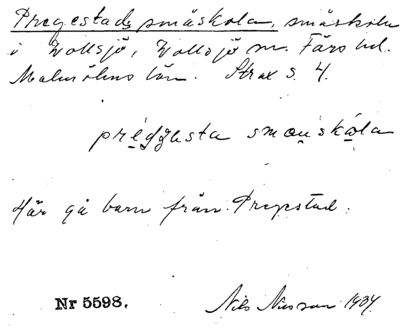 Pregestads småskola, småskola
i Vollsjö, Vollsjö sn. Färs hd.
Malmöhus län. Strax s. 4.
prédjästa smouskola
Här gå barn från Pregestad.
Nr 5598. Nils Nilsson 1934